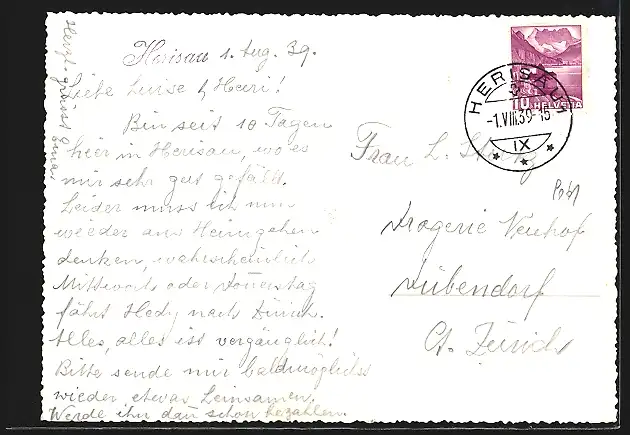 Herisau 1. Aug. 39.
Liebe Luise & Heiri!
Bin seit 10 Tagen
hier in Herisau, wo es
mir sehr gut gefällt.
Leider muss ich nun
wieder ans Heimgehen
denken, wahrscheinlich
Mittwoch oder Donnerstag
fährt Hedy nach Zürich.
Alles, alles ist vergänglich!
Bitte sende mir baldmöglichst
wieder etwas Leinsamen.
Werde ihn dan schon bezahlen.
Herzl. grüsst
HERISAU 1
-1.VIII.39-15
IX
10 HELVETIA
Frau L.
Drogerie Neuhof
Dübendorf
Ct. Zürich